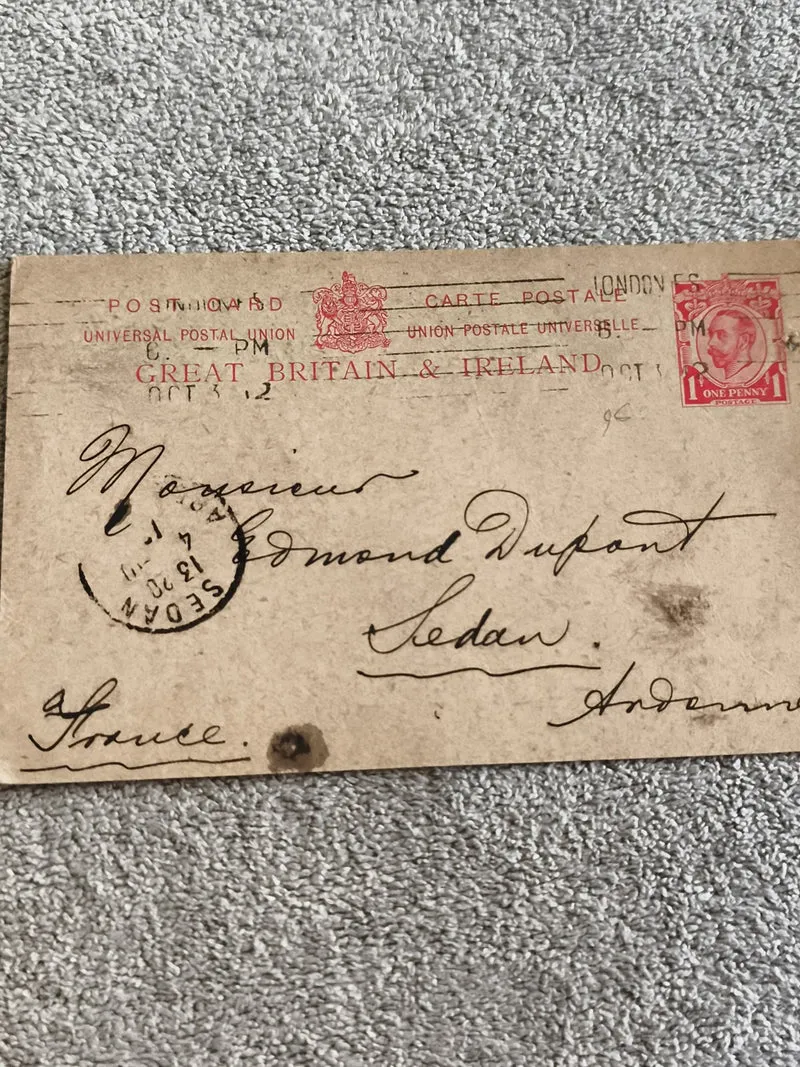 POST CARD CARTE POSTALE
UNIVERSAL POSTAL UNION UNION POSTALE UNIVERSELLE
GREAT BRITAIN & IRELAND
LONDON E.S
6. — PM
OCT 3 12
LONDON E.S
6. — PM
OCT 3 12
1 1
ONE PENNY
POSTAGE
Monsieur
Edmond Dupont
Sedan.
France.
SEDAN
13 20
4